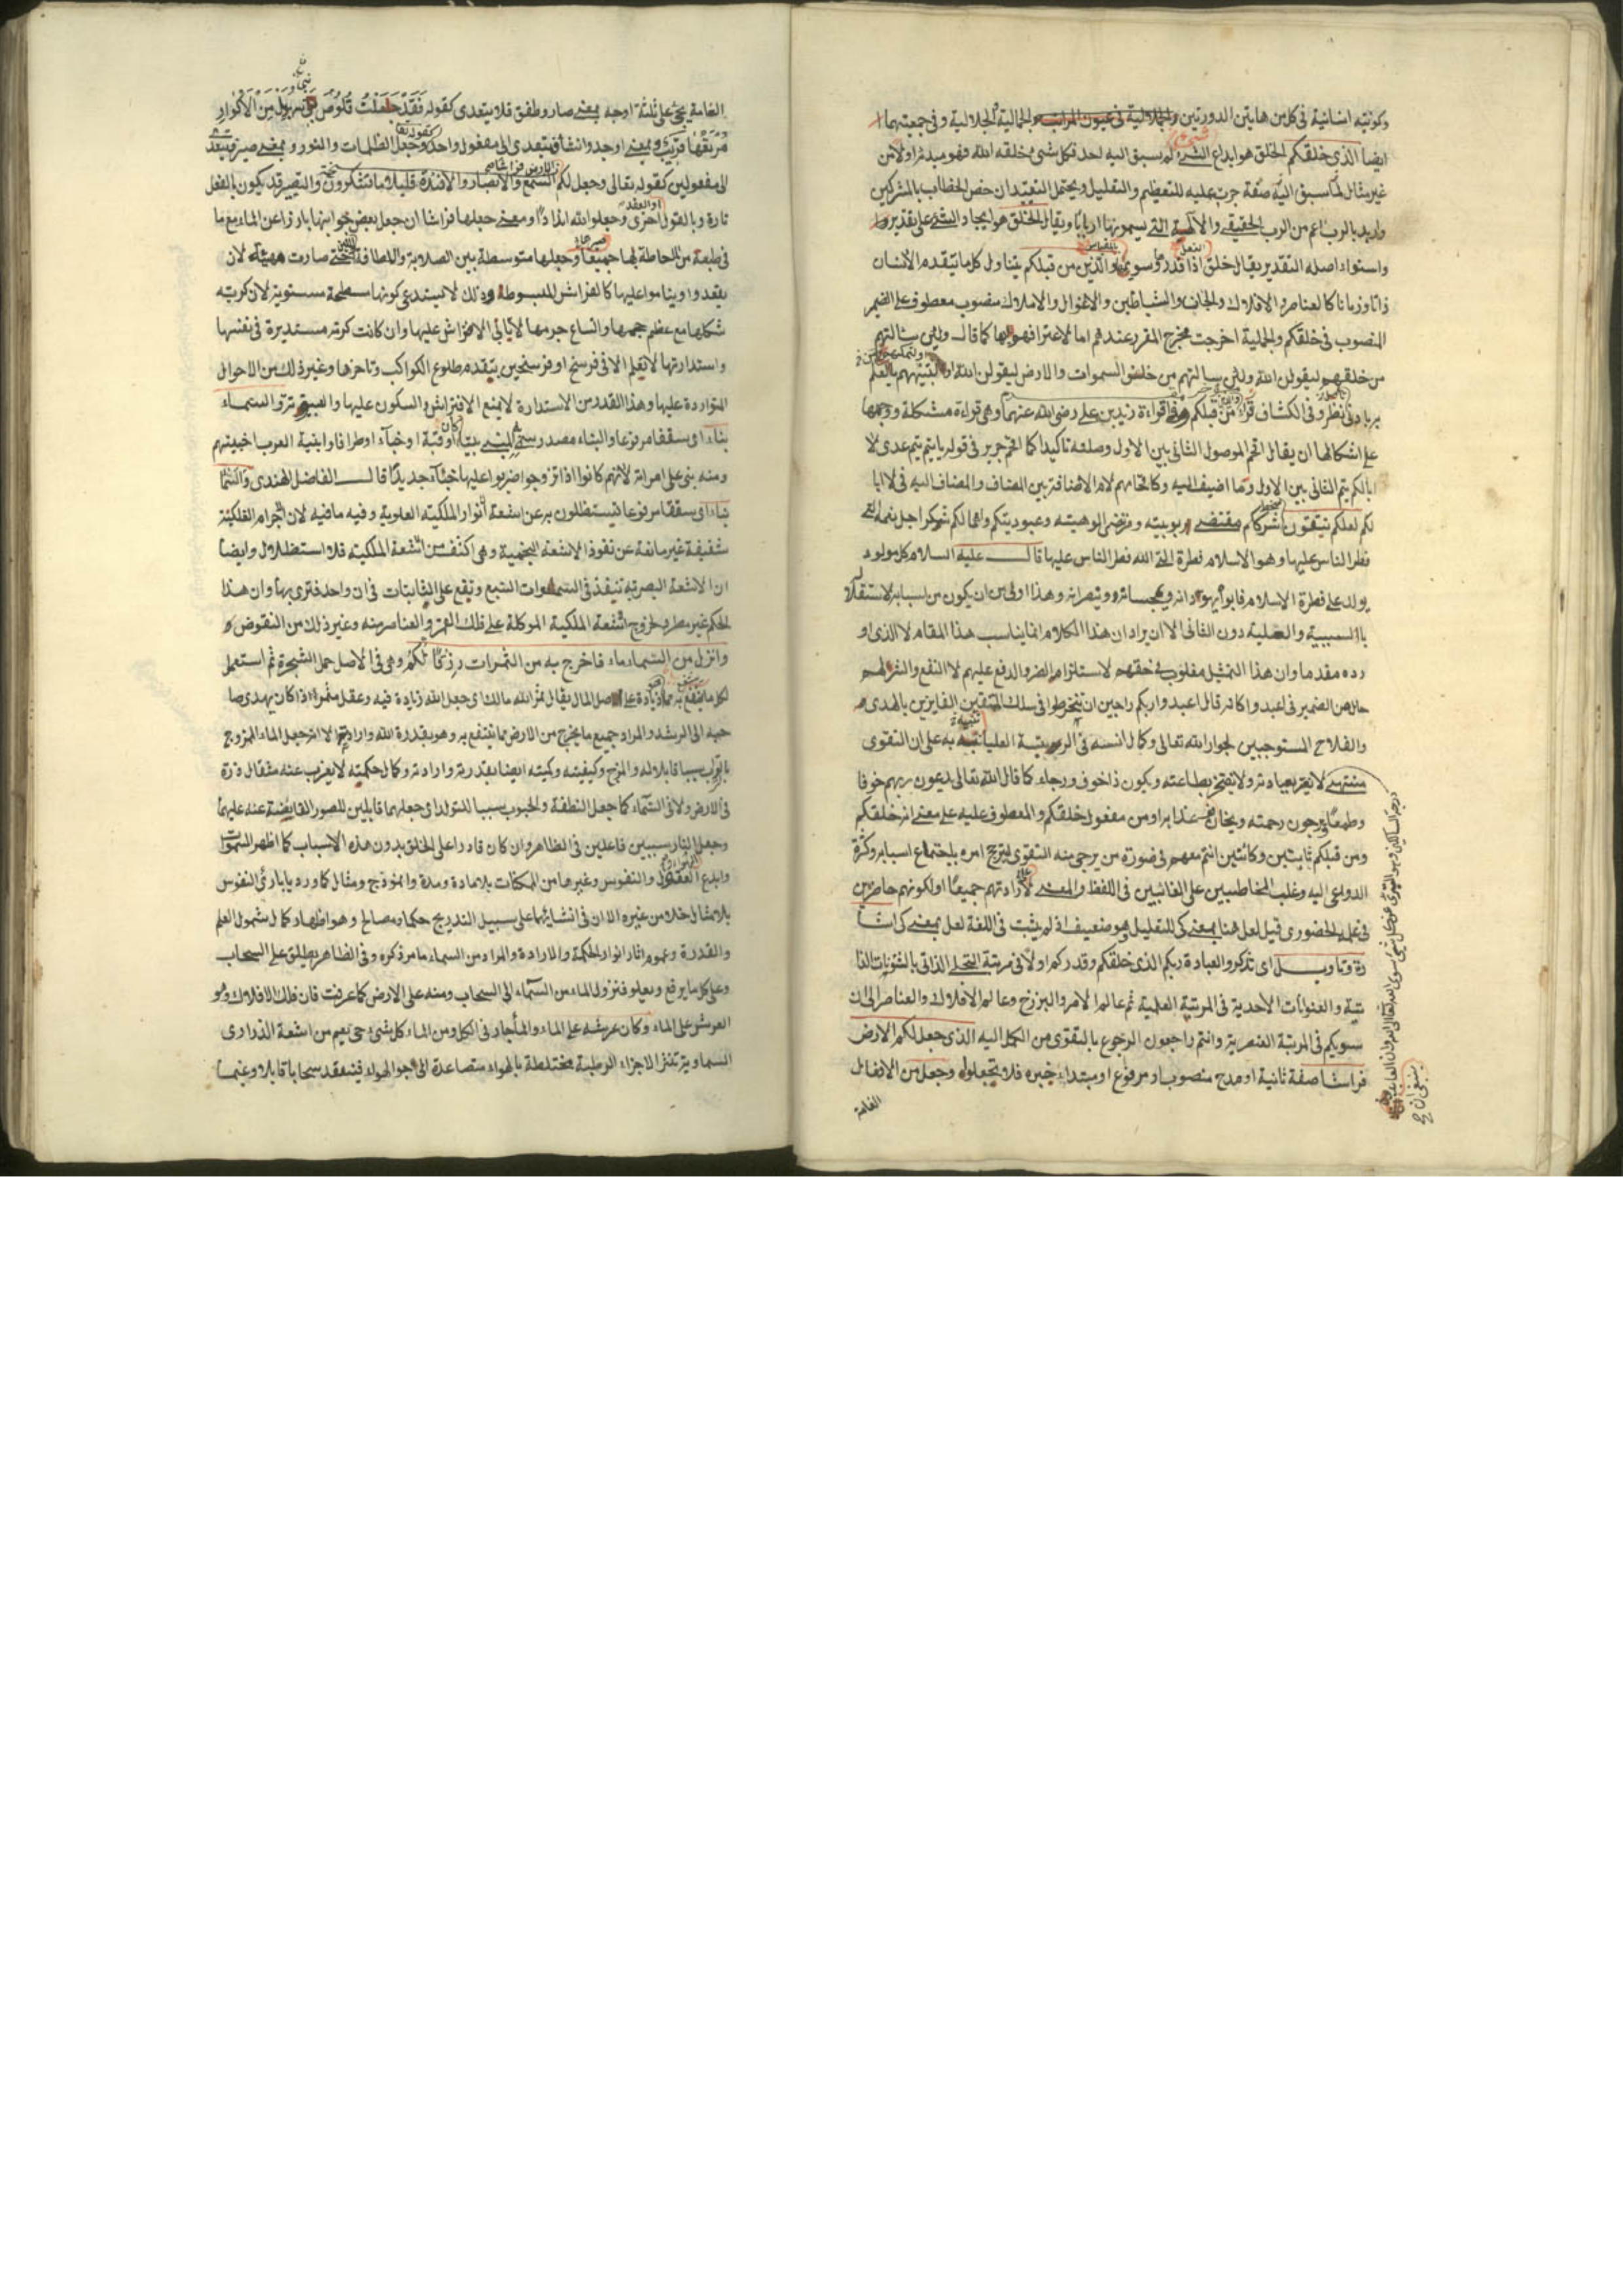 وكونيه انسانية في كل من هاتين الدورتين والجمالية الجلالية وفي جمعيتهما
ايضا الذي خلقكم الخلق هو ابداع الشيء لم يسبق اليه احد فكل شيء خلقه الله فهو مبدئه اولا من
غير مثال لما سبق اليه صفة جرت عليه للتعظيم والتعليل ويحتمل التقييد ان خص الخطاب بالمشركين
واريد بالرب اعم من الرب الحقيقي والآلهة التي يسمونها اربابا ويقال الخلق هو ايجاد الشيء على تقدير
واستواء اصله التقدير يقال خلق النعل اذا قدرها وسويها بالمقياس والذين من قبلكم يتناول كل ما يتقدم الانسان
ذاتا وزمانا كالعناصر والافلاك والجان والشياطين والاغوال والاملاك منصوب معطوف على الضمير
المنصوب في خلقكم والجملة اخرجت مخرج المقرر عندهم اما لاعترافهم بها كما قال ولئن سالتهم
من خلقهم ليقولن الله ولئن سالتهم من خلق السموات والارض ليقولن الله او لتمكنهم من العلم
به بادنى نظر وفي الكشاف قراءة زيد بن علي رضي الله عنهما وهي قراءة مشكلة ووجهها
على اشكالها ان يقال اقحم الموصول الثاني بين الاول وصلته تاكيدا كما اقحم جرير في قوله يا تيم تيم عدي لا
ابا لكم تيم الثاني بين الاول وما اضيف اليه وكاقحامهم لام الاضافة بين المضاف والمضاف اليه في لا ابا
لكم لعلكم تتقون مقتضى ربوبيته ومرتضى الوهيته وعبوديتكم
فطر الناس عليها وهو الاسلام فطرة الله التي فطر الناس عليها قال عليه السلام كل مولود
يولد على فطرة الاسلام فابواه يهودانه ويمجسانه وينصرانه وهذا اولى من ان يكون من لسبابه لاستقلا
بالسببية والعلية دون الثاني الا ان يراد ان هذا الكلام انما يناسب هذا المقام لا الذي او
رده مقدما وان هذا التمثيل مقلوب في حقهم لاستلزام الضر والدفع عليهم لا النفع والشر لهم
حال من الضمير في اعبدوا كانه قال اعبدوا ربكم راجين ان تنخرطوا في سلك المتقين الفايزين بالهدى
والفلاح المستوجبين لجوار الله تعالى وكمال انسه في الربوبية العليا نبه به على ان التقوى
منتهى لا يغتر بعبادته ولا يفتخر بطاعته ويكون ذا خوف ورجاء كما قال الله تعالى يدعون ربهم خوفا
وطمعا يرجون رحمته ويخافون عذابه او من مفعول خلقكم والمعطوف عليه على معنى انه خلقكم
ومن قبلكم ثابتين وكائنين انتم معهم في صورة من يرجى منه التقوى لترجح امره باجتماع اسبابه وكثرة
الدواعي اليه وغلب المخاطبين على الغائبين في اللفظ والمعنى على ارادتهم جميعا او لكونهم حاضرين
في علمه الحضوري قيل لعل هنا بمعنى كي للتعليل وهو ضعيف اذ لم يثبت في اللغة لعل بمعنى كي اشا
رة وتاويل اي تذكروا لعبادة ربكم الذي خلقكم وقدركم اولا في مرتبة التجلي الذاتي بالشئونات الذا
تية والعنوانات الاحدية في المرتبة العلمية ثم عالم الامر والبرزخ وعالم الافلاك والعناصر الى ان
سويكم في المرتبة العنصرية وانتم راجعون الرجوع بالتقوى من الكل اليه الذي جعل لكم الارض
فراشا صفة ثانية او مدح منصوب او مرفوع او مبتداء خبره فلا تجعلوا وجعل من الافعال
العامة
العامة يجئ على ثلثة اوجه بمعنى صار وطفق فلا يتعدى كقوله فقد جعلت قلوص بني سهيل من الاكوار
مرتعها قريب وبمعنى اوجد وانشا فيتعدى الى مفعول واحد كقوله تعالى وجعل الظلمات والنور وبمعنى صير فيتعدى
الى مفعولين كقوله تعالى وجعل لكم السمع والابصار والافئدة قليلا ما تشكرون والتصيير قد يكون بالفعل
تارة وبالقول او العقد اخرى وجعلوا لله اندادا ومعنى جعلها فراشا ان جعل بعض جوانبها بارزا عن الماء مع ما
في طبعه من الاحاطة بها جميعا وجعلها متوسطة بين الصلابة واللطافة حتى صارت مهيئة لان
يقعدوا ويناموا عليها كالفراش المبسوطة وذلك لا يستدعي كونها مسطحة مستوية لان كرية
شكلها مع عظم حجمها واتساع جرمها لا يأبى الافتراش عليها وان كانت كرته مستديرة في نفسها
واستدارتها لا تعلم الا في فرسخ او فرسخين بتقدم طلوع الكواكب وتاخرها وغير ذلك من الاحوال
المتواردة عليها وهذا القدر من الاستدارة لا يمنع الافتراش والسكون عليها والسماء
بناء اي سقفا مرفوعا والبناء مصدر سمي به المبنى بيتا كان او قبة او خباء او طرافا وابنية العرب اخبيتهم
ومنه بنى على امراته لانهم كانوا اذا تزوجوا ضربوا عليها خباء جديدا قال الفاضل الهندي والسماء
بناء اي سقفا مرفوعا تستظلون به عن اشعة انوار الملكية العلوية وفيه ما فيه لان اجرام الفلكية
شفيفة غير مانعة عن نفوذ الاشعة النجمية وهي اكثف من اشعة الملكية فلا استظلال وايضا
ان الاشعة البصرية تنفذ في السموات السبع وتقع على الثابتات في ان واحد فترى بها وان هذا
الحكم غير مطرد لخروج اشعة الملكية الموكلة على فلك القمر والعناصر منه وغير ذلك من النقوض
وانزل من السماء ماء فاخرج به من الثمرات رزقا لكم وهي في الاصل حمل الشجرة ثم استعمل
لكل ما ينتفع به زيادة على اصل المال يقال ثمر الله مالك اي جعل الله زيادة فيه وعقل مثمر اذا كان يهدي صا
حبه الى الرشد والمراد جميع ما يخرج من الارض مما ينتفع به وهو بقدرة الله وارادته الا انه جعل الماء الممزوج
بالتراب سببا قابلا له والمزج وكيفيته وكميته ايضا بقدرته وارادته وكمال حكمته لا يعزب عنه مثقال ذرة
في الارض ولا في السماء كما جعل النطفة والحبوب سببا للتولد اي جعلهما قابلين للصور الفايضة عنه عليهما
وجعل النار سببين فاعلين في الظاهر وان كان قادرا على الخلق بدون هذه الاسباب كما اظهر السموات
وابدع العقول والنفوس وغيرها من الممكنات بلا مادة ومدة وانموذج ومثال كما ورد يا بارئ النفوس
بلا مثال خلا من غيره الا ان في انشائهما على سبيل التدريج حكما ومصالح وهو اظهار كمال شمول العلم
والقدرة وعموم اثار انوار الحكمة والارادة والمراد من السماء ما مر ذكره وفي الظاهر يطلق على السحاب
وعلى كل ما يرفع ويعلو فنزول الماء من السماء الى السحاب ومنه على الارض كما عرفت فان فلك الافلاك وهو
العرش على الماء وكان عرشه على الماء والماء جار في الكل ومن الماء كل شيء حي نعم من اشعة الدراري
السماوية تنثر الاجزاء الرطبة مختلطة بالهواء متصاعدة الى جو الهواء فينعقد سحابا قابلا وغيما